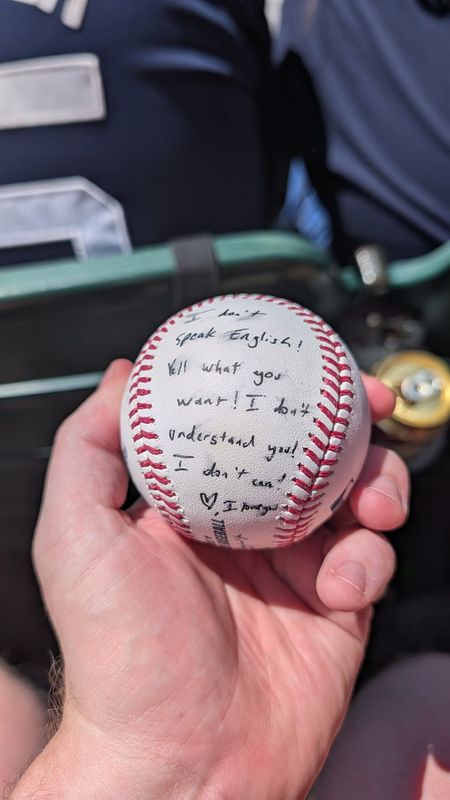 I don't
speak English!
Yell what you
want! I don't
understand you!
I don't care!
♡, I